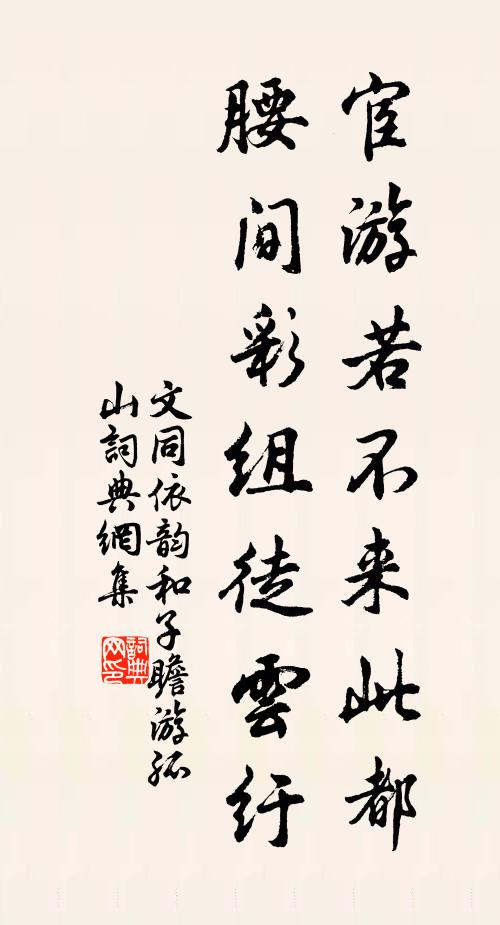 宦游若不来此都
腰间彩组徒雲纡
文同依韵和子瞻游孤
山詞典網集
詞典网印